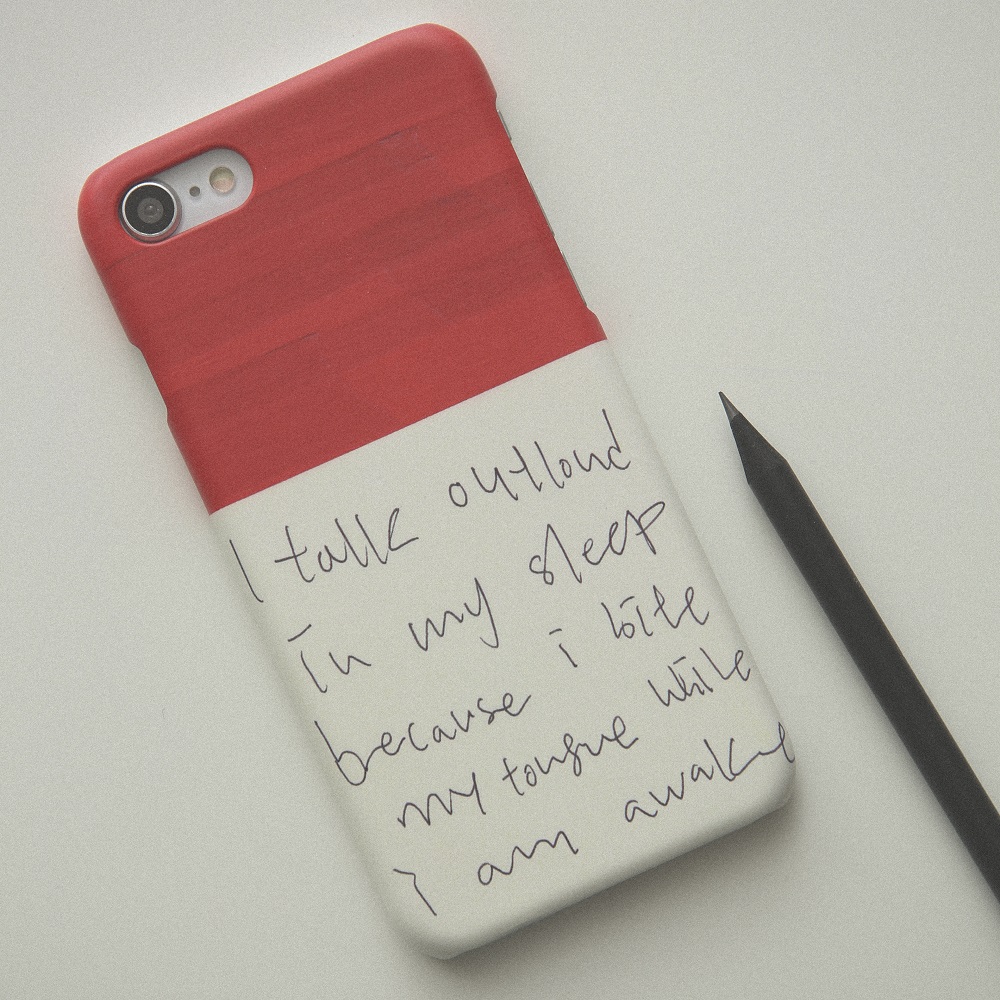 I talk outloud
in my sleep
because i bite
my tongue while
I am awake